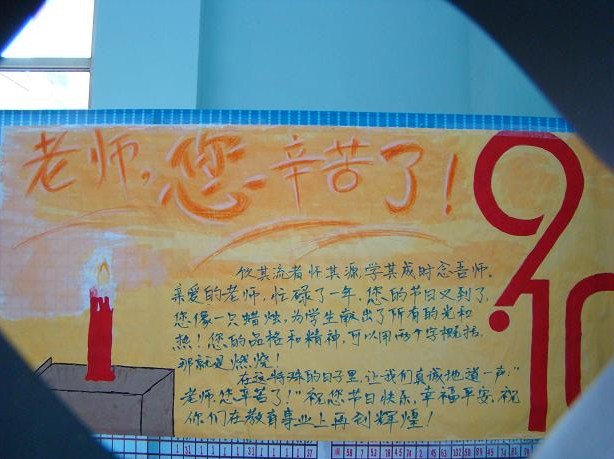 老师,您辛苦了!
9.10
饮其流者怀其源,学其成时念吾师。
亲爱的老师,忙碌了一年,您的节日又到了,
您像一只蜡烛,为学生献出了所有的光和
热!您的品格和精神,可以用两个字概括.
那就是燃烧!
在这特殊的日子里,让我们真诚地道一声:"
老师,您辛苦了!"祝您节日快乐,幸福平安,祝
你们在教育事业上再创辉煌!